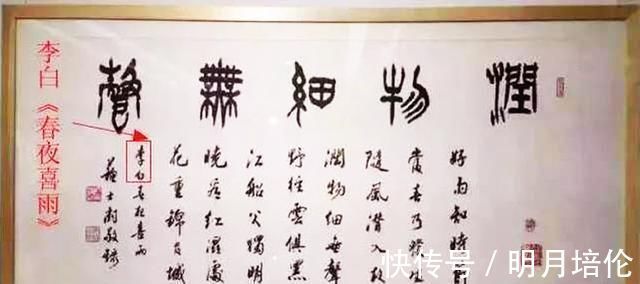 李白《春夜喜雨》
潤物細無聲
好雨知時節
當春乃發生
隨風潛入夜
潤物細無聲
野徑雲俱黑
江船火獨明
曉看紅濕處
花重錦官城
李白春夜喜雨
蘇士澍敬錄
快传号 / 明月培伦